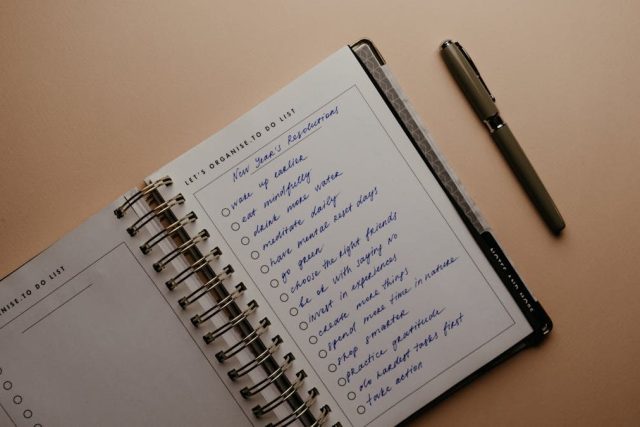 NISE:TO DO LIST
LET'S ORGANISE:TO DO LIST
New Year's Resolutions
wake up earlier
eat mindfully
drink more water
meditate daily
have mental reset days
go green
choose the right friends
be ok with saying no
invest in experiences
create more things
spend more time in nature
shop smarter
practice gratitude
do hardest tasks first
take action
NOTES AND MORE